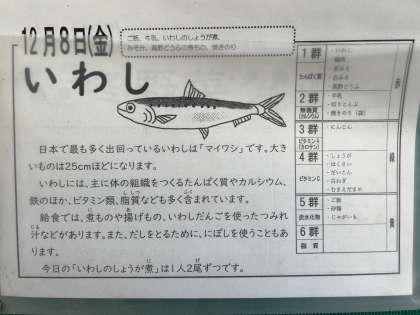 12月8日(金)
ご飯、牛乳、いわしのしょうが煮、
みそ汁、高野どうふの煮もの、焼きのり
いわし
日本で最も多く出回っているいわしは「マイワシ」です。大
きいものは25cmほどになります。
いわしには、主に体の組織をつくるたんぱく質やカルシウム、
鉄のほか、ビタミン類、脂質なども多く含まれています。
給食では、煮ものや揚げもの、いわしだんごを使ったつみれ
汁などがあります。また、だしをとるために、にぼしを使うこともあ
ります。
今日の「いわしのしょうが煮」は1人2尾ずつです。
1群
たんぱく質
・いわし
・鶏肉
・赤みそ
・白みそ
・高野どうふ
2群
無機質
(カルシウム)
・牛乳
・切りこんぶ
・焼きのり（袋）
赤
3群
ビタミンA
(カロテン)
・にんじん
4群
ビタミンC
・しょうが
・はくさい
・だいこん
・白ねぎ
・むきえだまめ
緑
5群
炭水化物
・ご飯
・砂糖
・じゃがいも
6群
脂質
黄